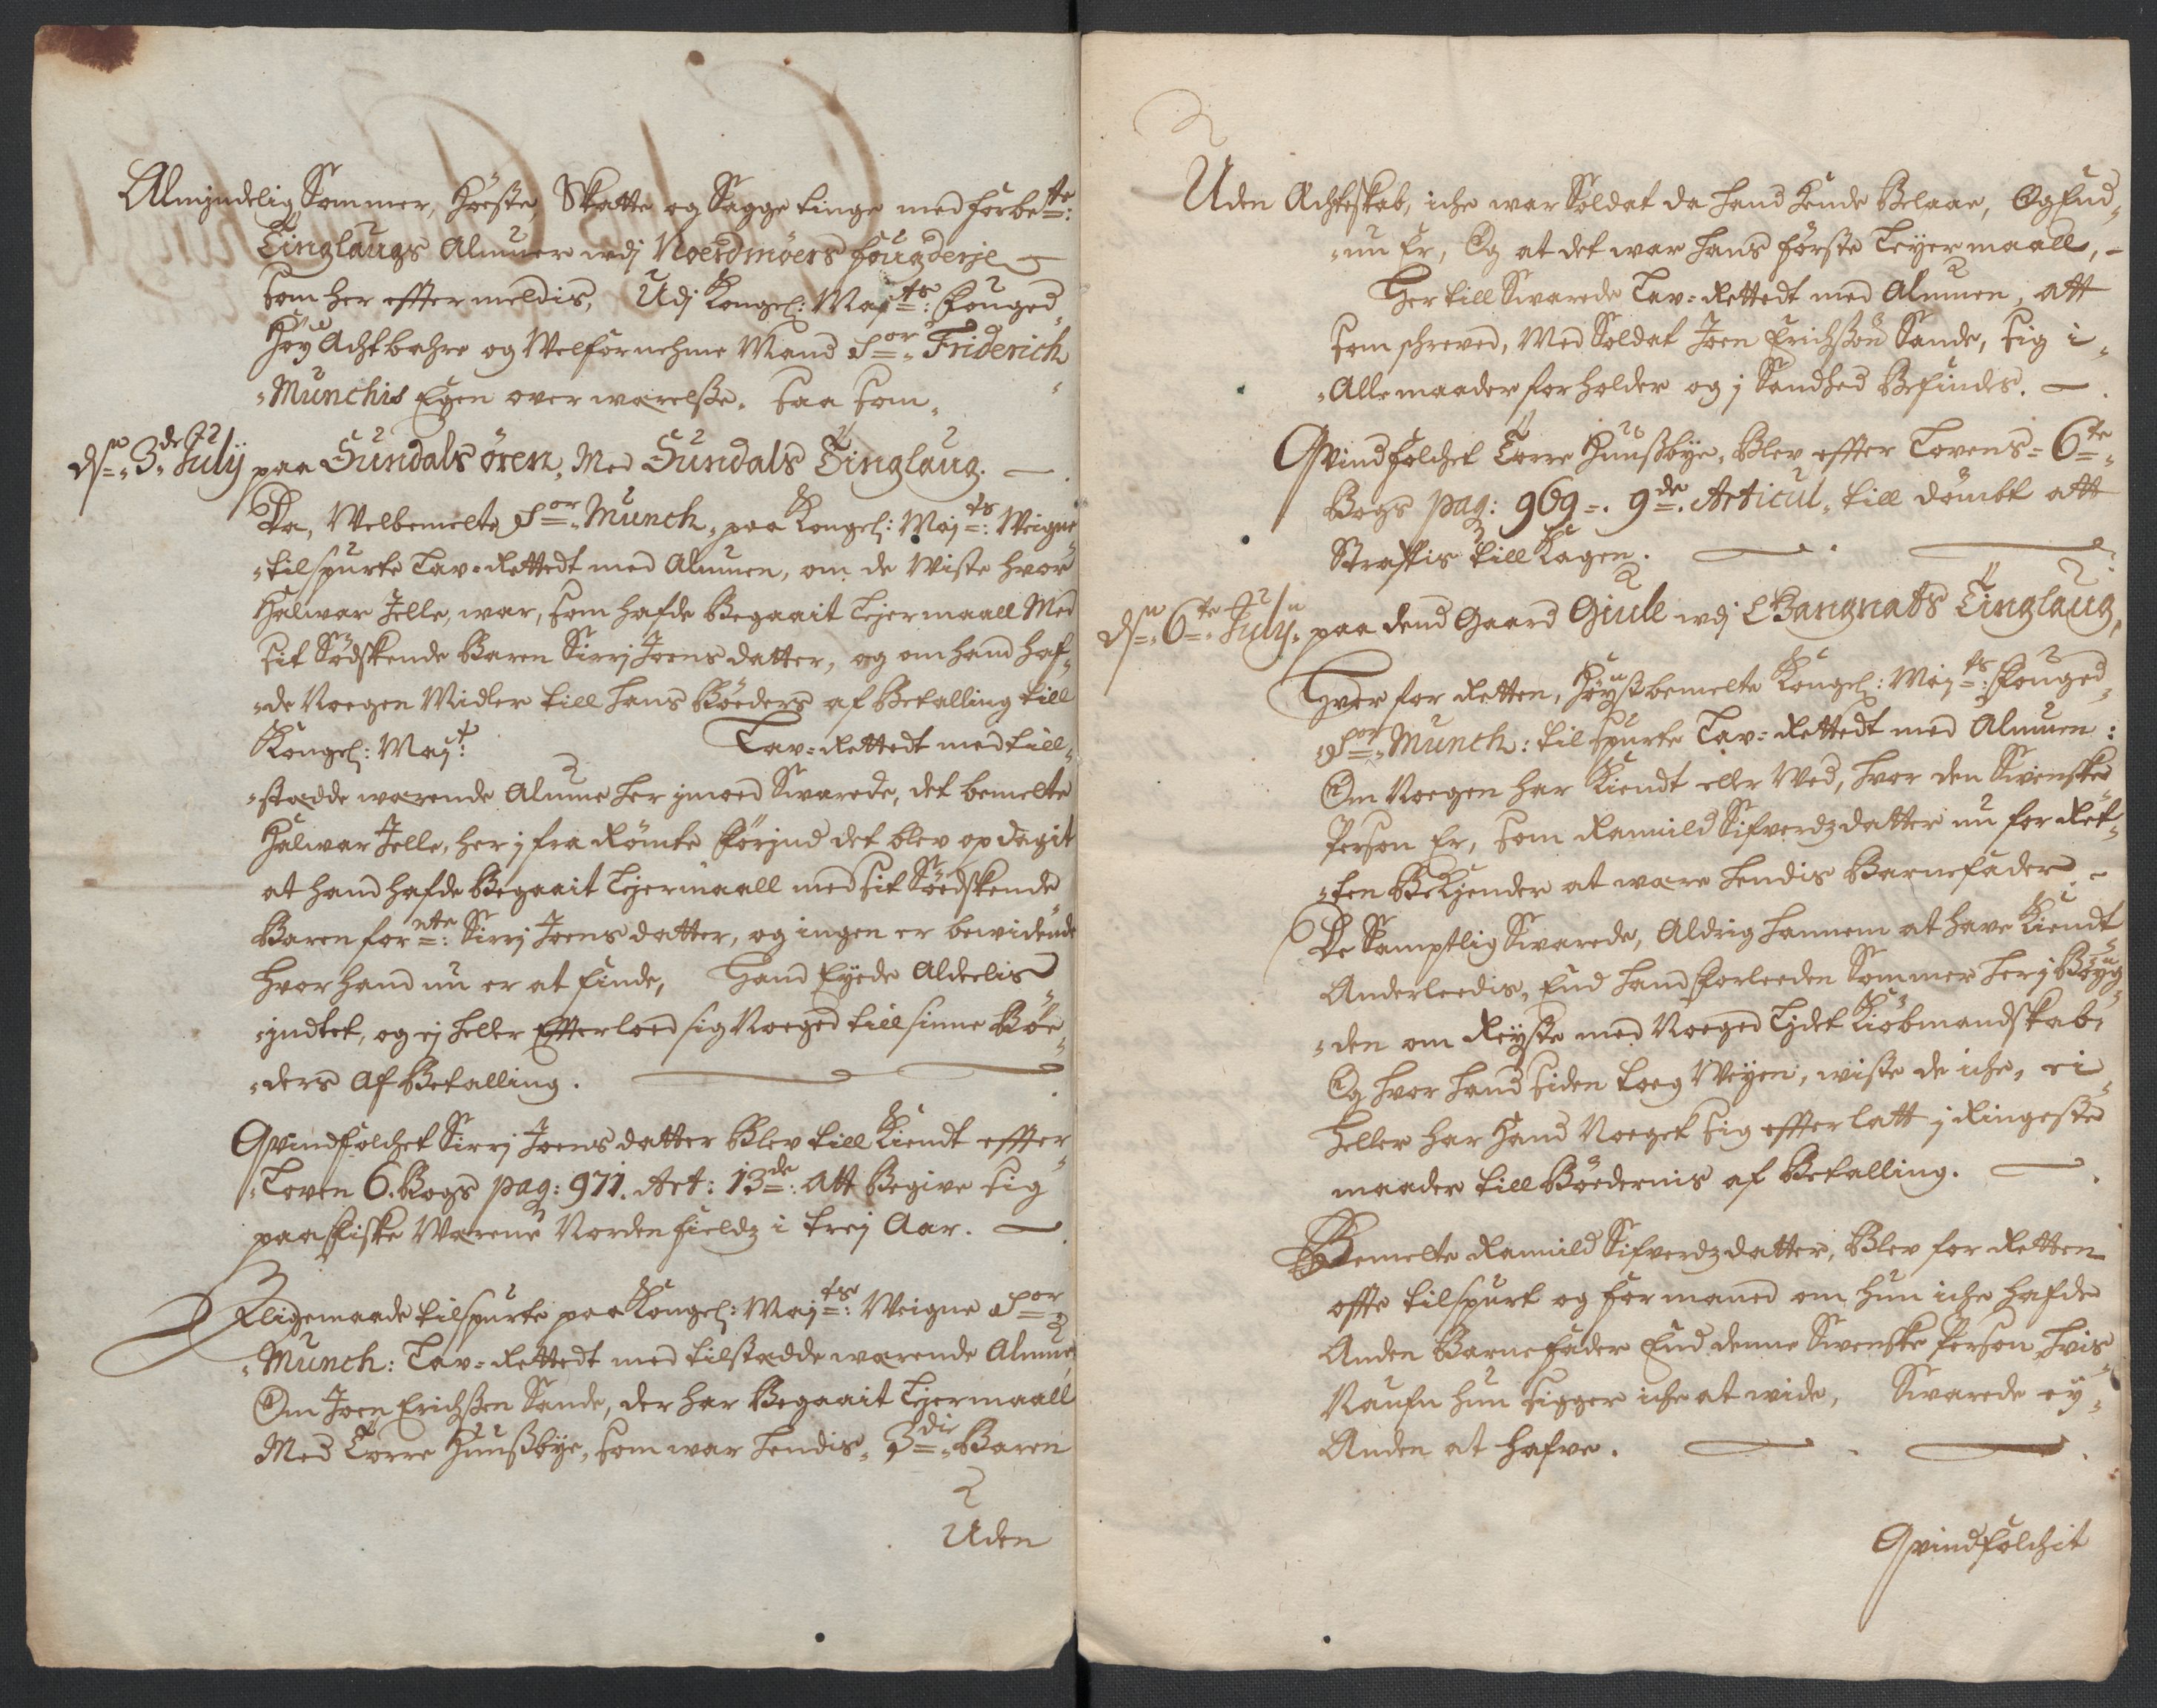 Almindelig Sommer, Høeste, Skatte og Sagge tinge med forbete:
Tinglaugs Almuer udj Noerdmøers fougderje
som her effter meldis, Udj Kongel: Majts: Fouged,
Høy Achtbahre og Welfornehme Mand Sor. Friderich
Munchis Egen over warelsse. saa som
dn. 3de July paa Sundals ören, Med Sundals Tinglaug.
Da, Welbemelte Sor. Munch, paa Kongel: Majts: Weigne
tilspurte Lav-Rettedt med Almuen, om de Wiste hvor
Halwar Jelle, war, som hafde Begaait Lejermaall Med
sit Södskende Baren Sirrj Joens datter, og om hand haf-
de Noegen Midler till hans Böeders af Betalling till
Kongel: Majt: Lav-Rettedt med till-
stædde warende Almue her jmoed Swarede, det bemelte
Halwar Jelle, her j fra Römte förjnd det blev opdagit
at hand hafde Begaait Lejermaall med sit Söedskende
Baren fornte: Sirrj Joens datter, og ingen er bewidende
hvor hand nu er at finde, Hand Eyede Aldelis
jndtet, og ej heller Efterloed sig Noeged till sinne Böe-
ders Af Betalling.
Qvindfolchet Sirrj Joens datter Blev till Kiendt effter
Loven 6. Bogs pag: 971. Art: 13de: Att Begive sig
paa Fiske Warene Norden fieldz i trej Aar.
Jligemaade tilspurte paa Kongel: Majts: Weigne Sor
Munch: Lav-Rettedt med tilstædde warende Almue
Om Joen Erichssen Sande, der har Begaait Lejermaall
Med Torre Huussbye, som war hendis 3die Baren
Uden
Uden Achteskab, iche war Soldat da hand hende Belaae, Og End-
nu Er, Og at det war hans förste Leyermaall,
Her till Swarede Lav-Rettedt med Almuen, att
som schreved, Med Soldat Joen Erichssön Sande, sig i
Alle maader forholder og j Sandhed Befindes.
Qvindfolchet Torre Huussbye, Blev effter Lovens 6te
Bogs pag: 969. 9de Articul, till dömbt att
Straffis till Kagen.
dn. 6te July, paa dend Gaard Giule udj Bangnæs Tinglaug,
Hvor for Retten, Höystbemelte Kongel: Majts: Fouged
Sor. Munch: tilspurte Lav-Rettedt med Almuen:
Om Noegen har Kiendt eller Wed, hvor den Swenske
Person Er, som Ramild Sifverdzdatter nu for Ret-
ten Bekjender at ware hendis Barnefader
De Samptlig Swarede, Aldrig hannem at have Kiendt
Anderledis, End hand forleeden Sommer her j Böyg-
den om Reyste med Noeged Lidet Kiöbmandskab,
Og hvor hand siden toeg Weyen, wiste de iche, ei
heller har Hand Noeget sig effterlatt j Ringeste
maader till Böedernis af Betalling.
Bemelte Ramild Sifverdzdatter, Blev for Retten
offte tilspurt og formaned om hun iche hafde
Anden Barnefader End denne Swenske Person, hvis
Naufn hun sigger iche at wide, Swarede ey
Anden at hafve.
Qvindfolchit